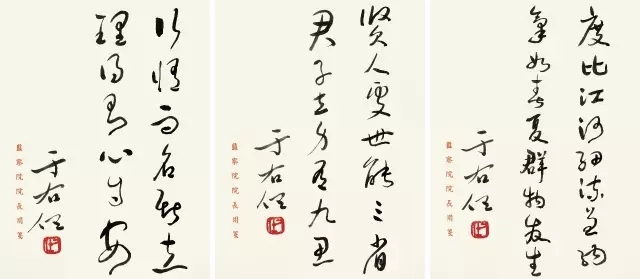 行脩而名斯立
理得則心自安
于右任
監察院院長用箋
賢人處世能三省
君子立身有九思
于右任
監察院院長用箋
度比江河細流兼納
氣如春夏群物發生
于右任
監察院院長用箋